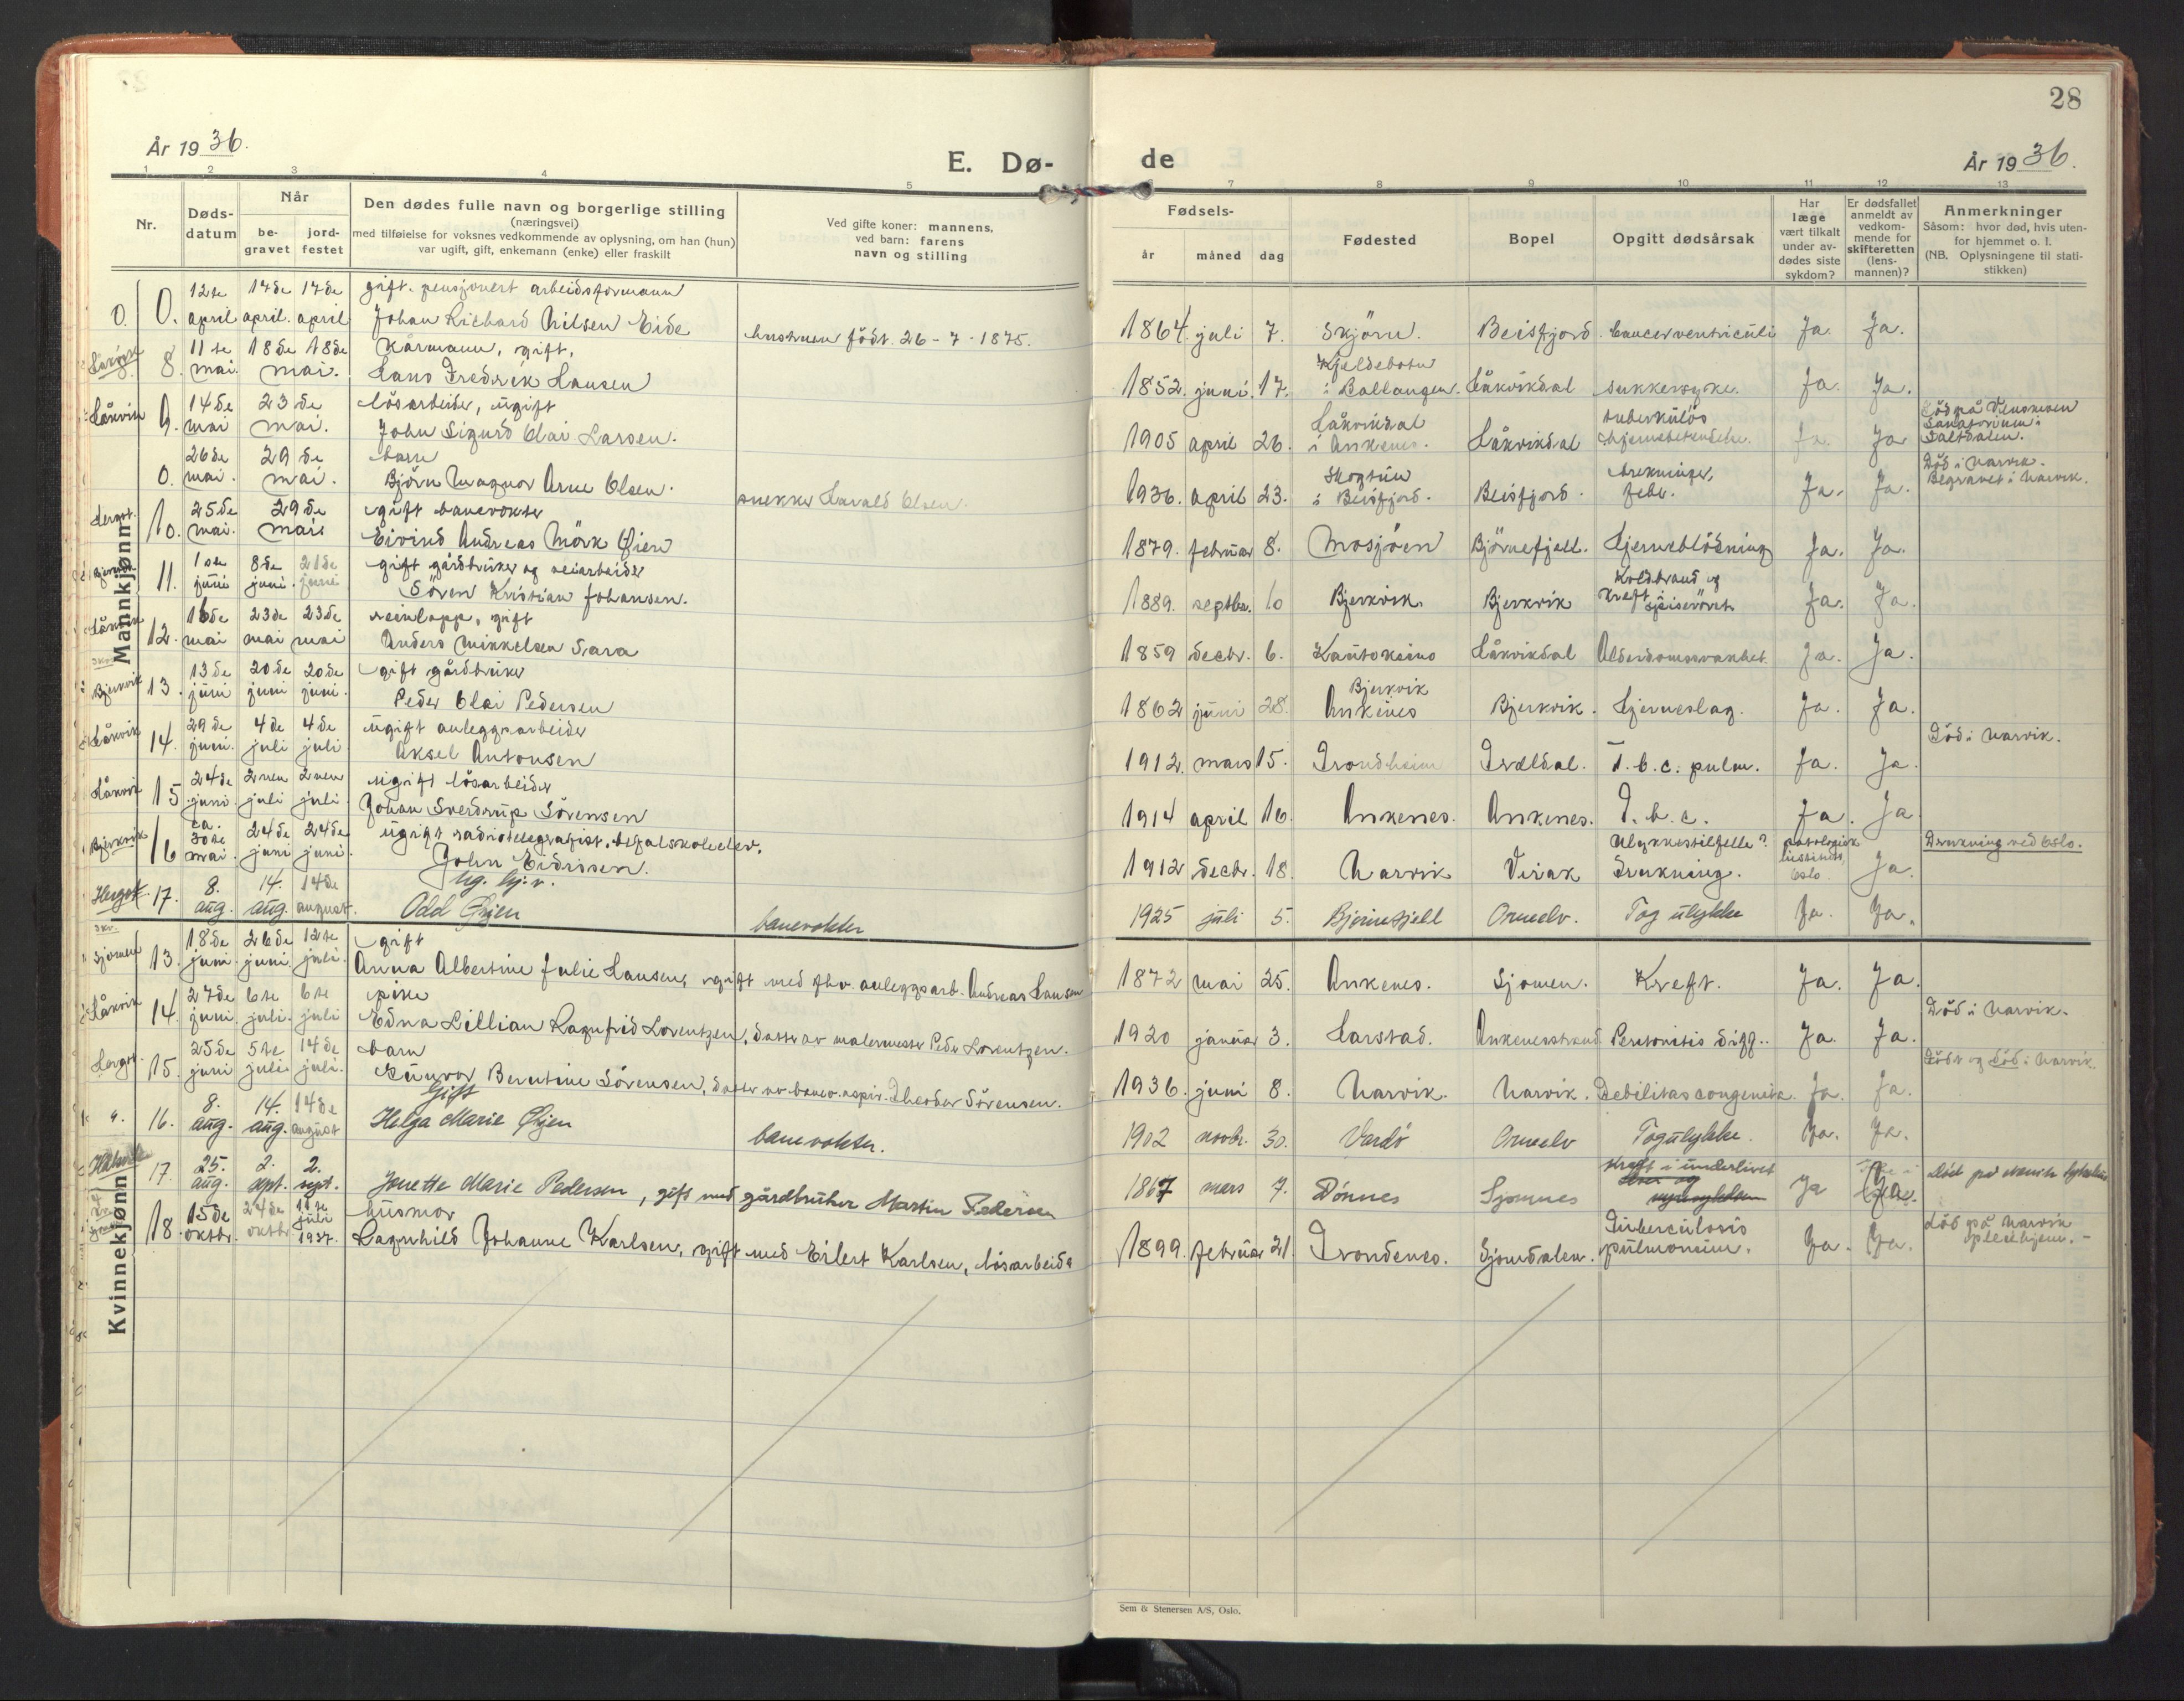 28
År 1936.
E. Dø-
de
År 1936.
1 2 3 4 5 6 7 8 9 10 11 12 13
Nr.
Døds-
datum
Når
be-
gravet
jord-
festet
Den dødes fulle navn og borgerlige stilling
(næringsvei)
med tilføielse for voksnes vedkommende av oplysning, om han (hun)
var ugift, gift, enkemann (enke) eller fraskilt
Ved gifte koner: mannens,
ved barn: farens
navn og stilling
Fødsels-
år måned dag
Fødested
Bopel
Opgitt dødsårsak
Har
læge
vært tilkalt
under av-
dødes siste
sykdom?
Er dødsfallet
anmeldt av
vedkom-
mende for
skifteretten
(lens-
mannen)?
Anmerkninger
Såsom: hvor død, hvis uten-
for hjemmet o. l.
(NB. Oplysningene til stati-
stikken)
Mannkjønn
12te 17de 17de gift. pensjonert arbeidsformann
0. 0. april april. april Johan Richard Nilsen Eide hustruen født 26-7-1875. 1864. juli 7. Skjørn. Beisfjord. Cancer ventriculi Ja. Ja.
11te 18de 18de Kårmann, gift, Kjeldebotn
8. mai. mai. Hans Fredrik Hansen 1852. juni. 17. i Ballangen. Håkvikdal sukkersyke. Ja. Ja.
Håkvik 14de 23de løsarbeider, ugift Håkvikdal tuberkuløs Død på Vensmoen
9. mai mai. John Sigurd Olai Larsen. 1905 april 26. i Ankenes. Håkvikdal hjernebetendelse. Ja. Ja Sanatorium i
Saltdalen.
26de 29de barn Skogtun brekninger, Død i Narvik.
0. mai. mai. Bjørn Magnor Arne Olsen. snekker Harald Olsen. 1936. april 23. i Beisfjord. Beisfjord. feber. Ja. Ja. Begravet i Narvik.
Hergot. 25de 29de gift banevokter
10. mai. mai Eivind Andreas Mörk Öien 1879. februar 8. Mosjøen Bjørnefjell. Hjerneblödning Ja. Ja.
1ste 8de 21de gift gårdbruker og veiarbeider Koldbrand og
11. juni juni. juni Søren Kristian Johansen. 1889. septbr. 10 Bjerkvik. Bjerkvik kreft i spiserøret. Ja. Ja.
Håkvik 16de 23de 23de reinlapp, gift
12. mai mai mai Anders Mikkelsen Sara 1859 decbr. 6. Kautokeino Håkvikdal Alderdomssvakhet. Ja. Ja.
Bjerkvik 13de 20de 20de gift gårdbruker Bjerkvik
13. juni juni juni. Peder Olai Pedersen 1862 juni 28. Ankenes Bjerkvik. Hjerneslag. Ja. Ja.
Håkvik 29de 4de 4de ugift anleggsarbeider Død i Narvik.
14. juni. juli juli Aksel Antonsen 1912. mars 15. Trondheim Drældal. T. b. c. pulm. Ja. Ja.
Håkvik 24de 2nen 2nen ugift løsarbeider
15 juni. juli juli Johan Sverdrup Sörensen 1914 april 16. Ankenes. Ankenes. T. b. c. Ja. Ja
Bjerkvik ca. 30te 24de 24de ugift radiotelegrafist, befalskoleelev. Ulykkestilfelle? patologisk
16 mai. juni juni. John Eidissen. 1912 decbr. 18. Narvik Virak Drukning. institutt, Oslo. Ja. Drukning ved Oslo.
Hergot. 8. 14. 14de ug. hj.v.
17. aug. aug. august. Odd Øijen banevokter 1925 juli 5. Bjørnefjell Orneelv. Tog ulykke Ja. Ja.
Kvinnekjønn
Sjomen 18de 26de 12te gift
13. juni juni juli. Anna Albertine Julie Hansen, gift med fhv. anleggsarb. Andreas Hansen 1872 mai 25. Ankenes. Sjomen. Kreft. Ja. Ja.
Håkvik 27de 6te 6te pike Død i Narvik.
14. juni. juli. juli Edna Lillian Ragnfrid Lorentzen, datter av malermester Peder Lorentzen. 1920 januar 3. Harstad. Ankenesstrand Peritonitis diff.. Ja. Ja.
Hergot. 25de 5te 14de barn Født og død i Narvik.
15. juni juli juli. Gunvor Berntine Sörensen, datter av banev. aspir. Theodor Sörensen. 1936. juni 8. Narvik. Narvik. Debilitas congenita. Ja. Ja.
". 8. 14. 14de Gift
16. aug. aug. august Helga Marie Øijen banevokter. 1902 novbr. 30. Vardø Orneelv Togulykke. Ja. Ja.
25. 2. 2. Kreft i underlivet
17. aug. sept. sept. Jonette Marie Pedersen, gift med gårdbruker Martin Pedersen 1867 mars 7. Dønnes Sjomnes Ja Ja. Død på Narvik sykehus
15de 24de 11te husmor Tuberculosis Død på Narvik
18. oktbr. oktbr juli 1937. Ragnhild Johanne Karlsen, gift med Eilert Karlsen, løsarbeider 1899. februar 21. Trondenes. Sjomdalen. pulmonum. Ja. Ja. pleiehjem.
Sem & Stenersen A/S, Oslo.